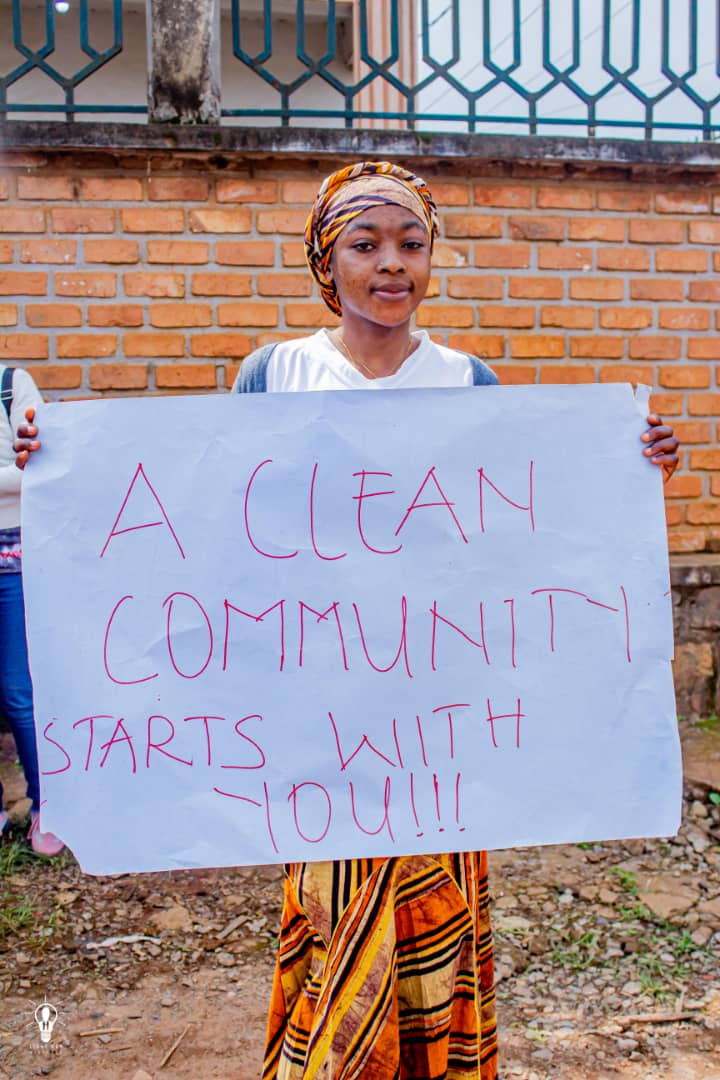 A CLEAN
COMMUNITY
STARTS WITH
YOU!!!